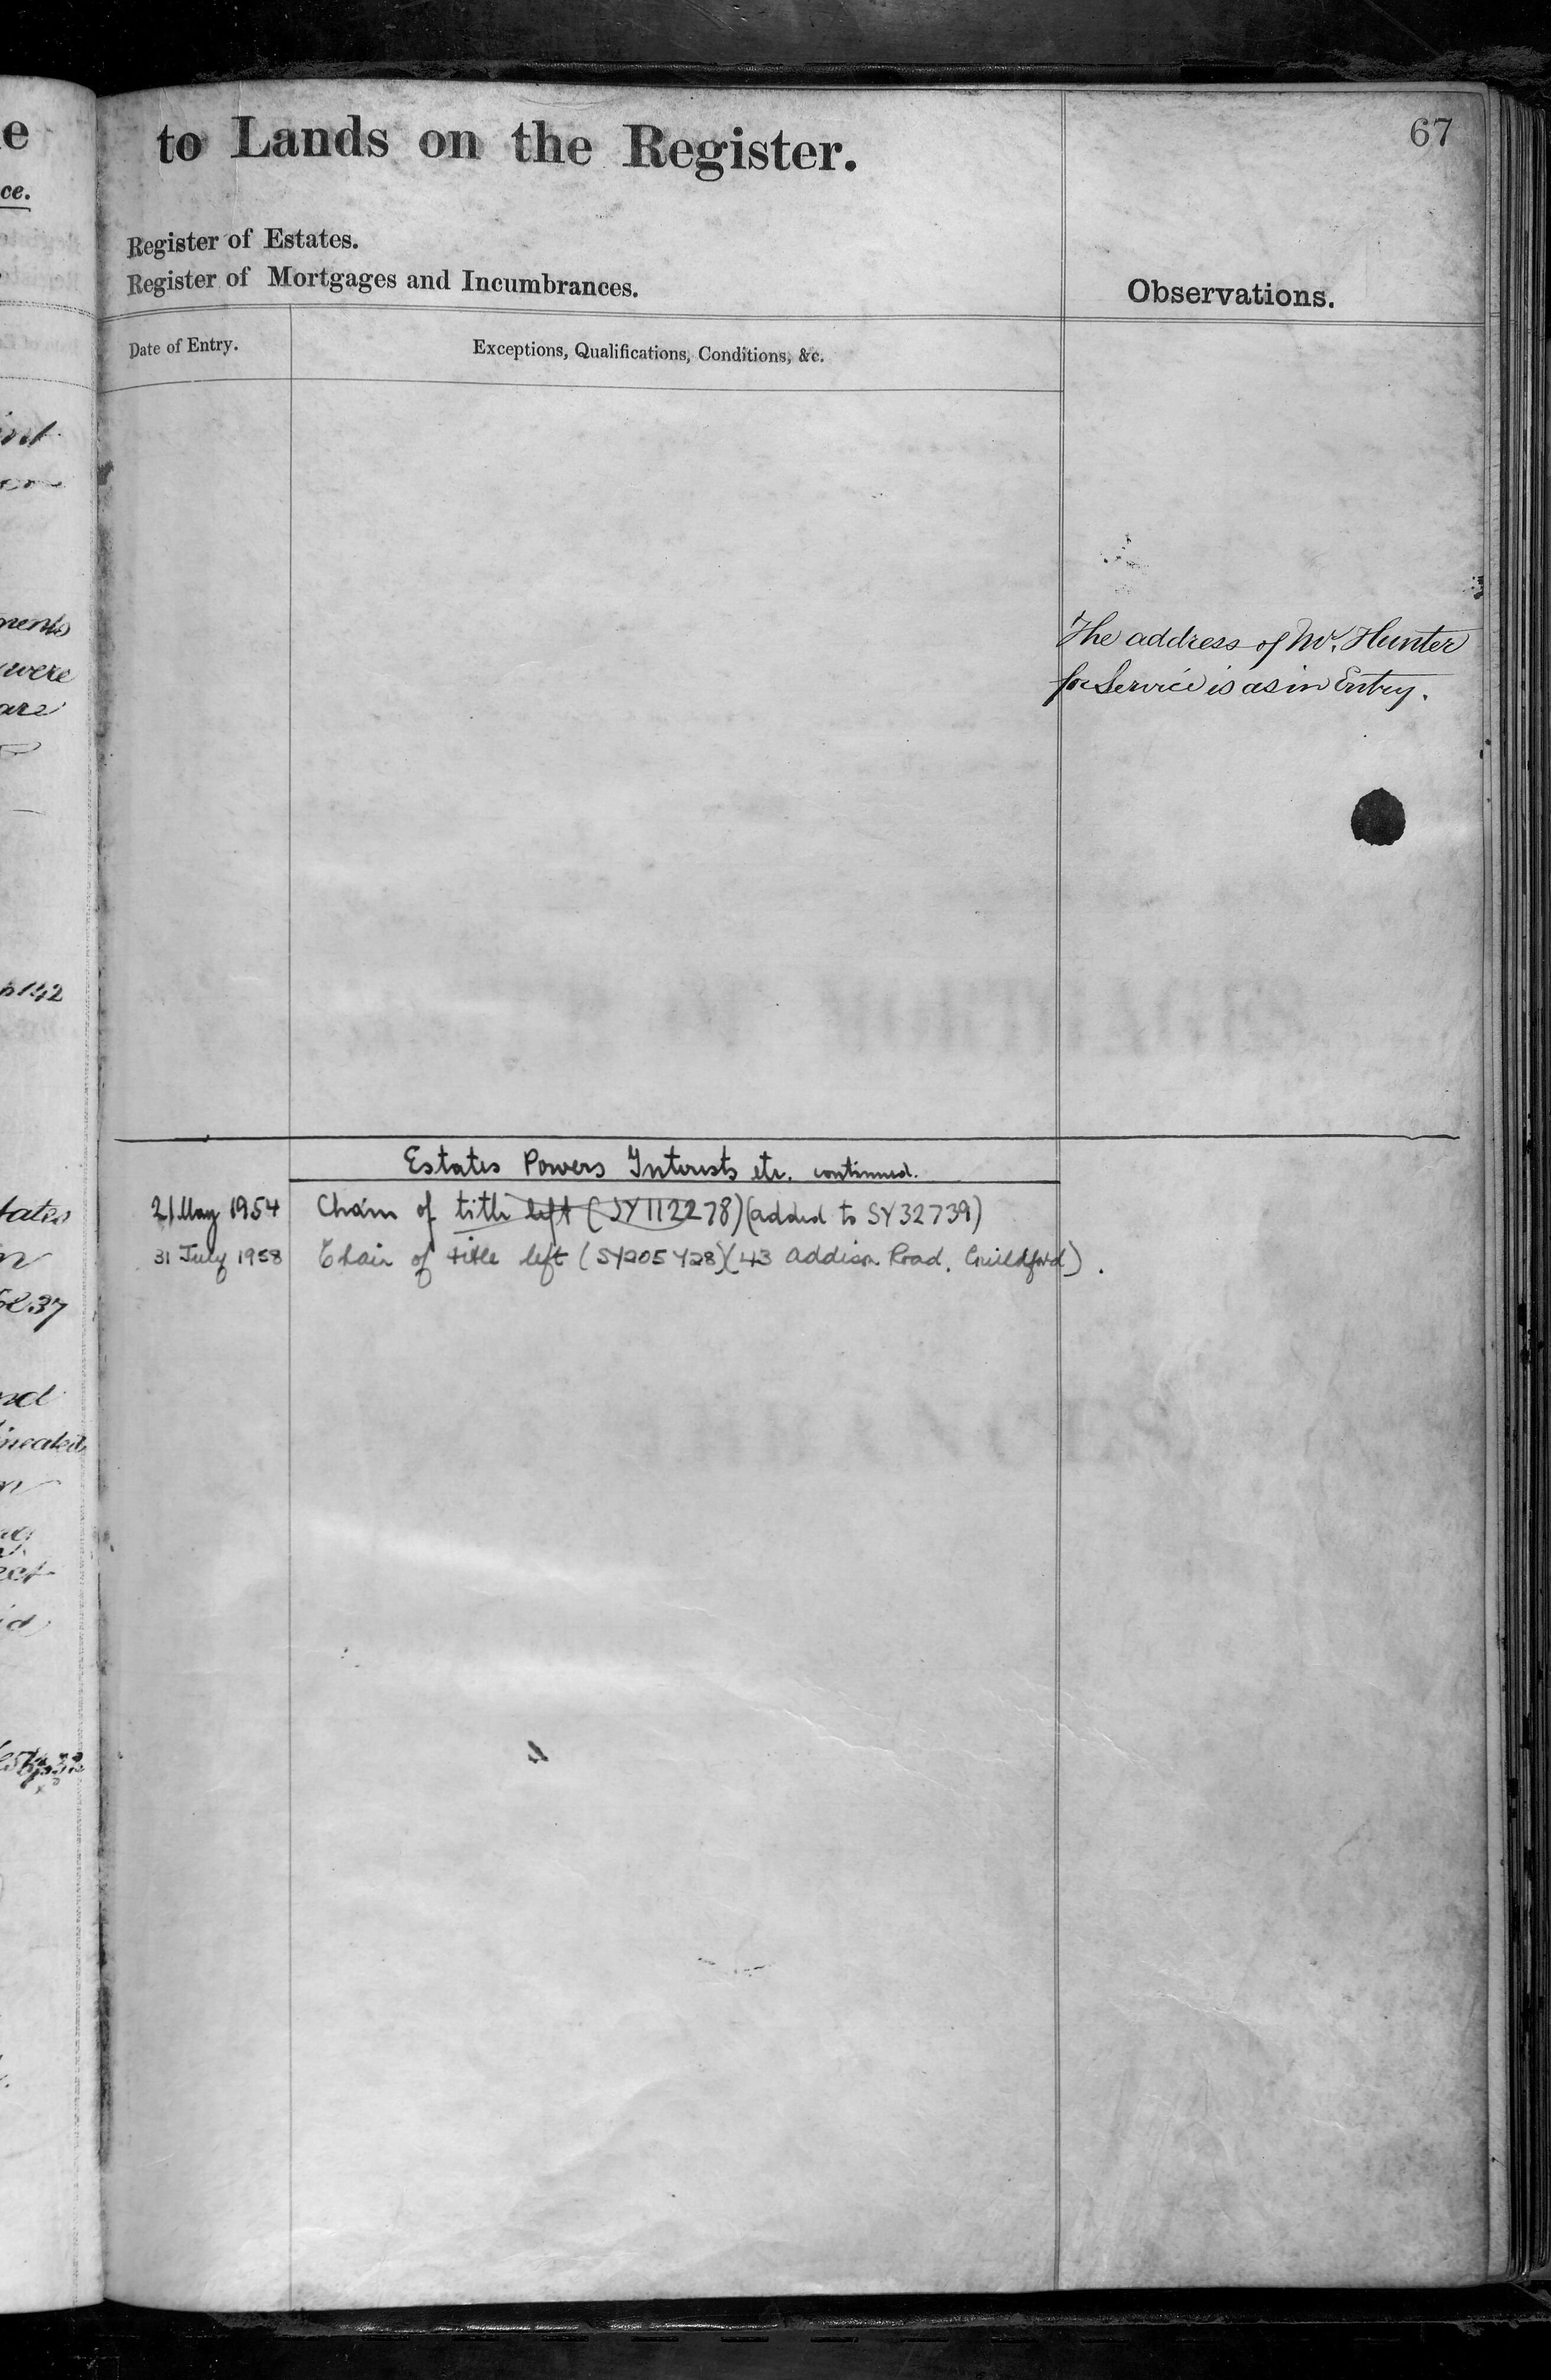 67
to Lands on the Register.
Register of Estates.
Register of Mortgages and Incumbrances.
Observations.
Date of Entry.
Exceptions, Qualifications, Conditions, &c.
The address of Mr. Hunter
for Service is as in Entry.
Estates Powers Interests etc. continued.
21 May 1954 Chain of title left (SY112278) (added to SY32739)
31 July 1958 Chain of title left (SY205428) (43 Addison Road, Guildford).
e
ce.
were
are
6142